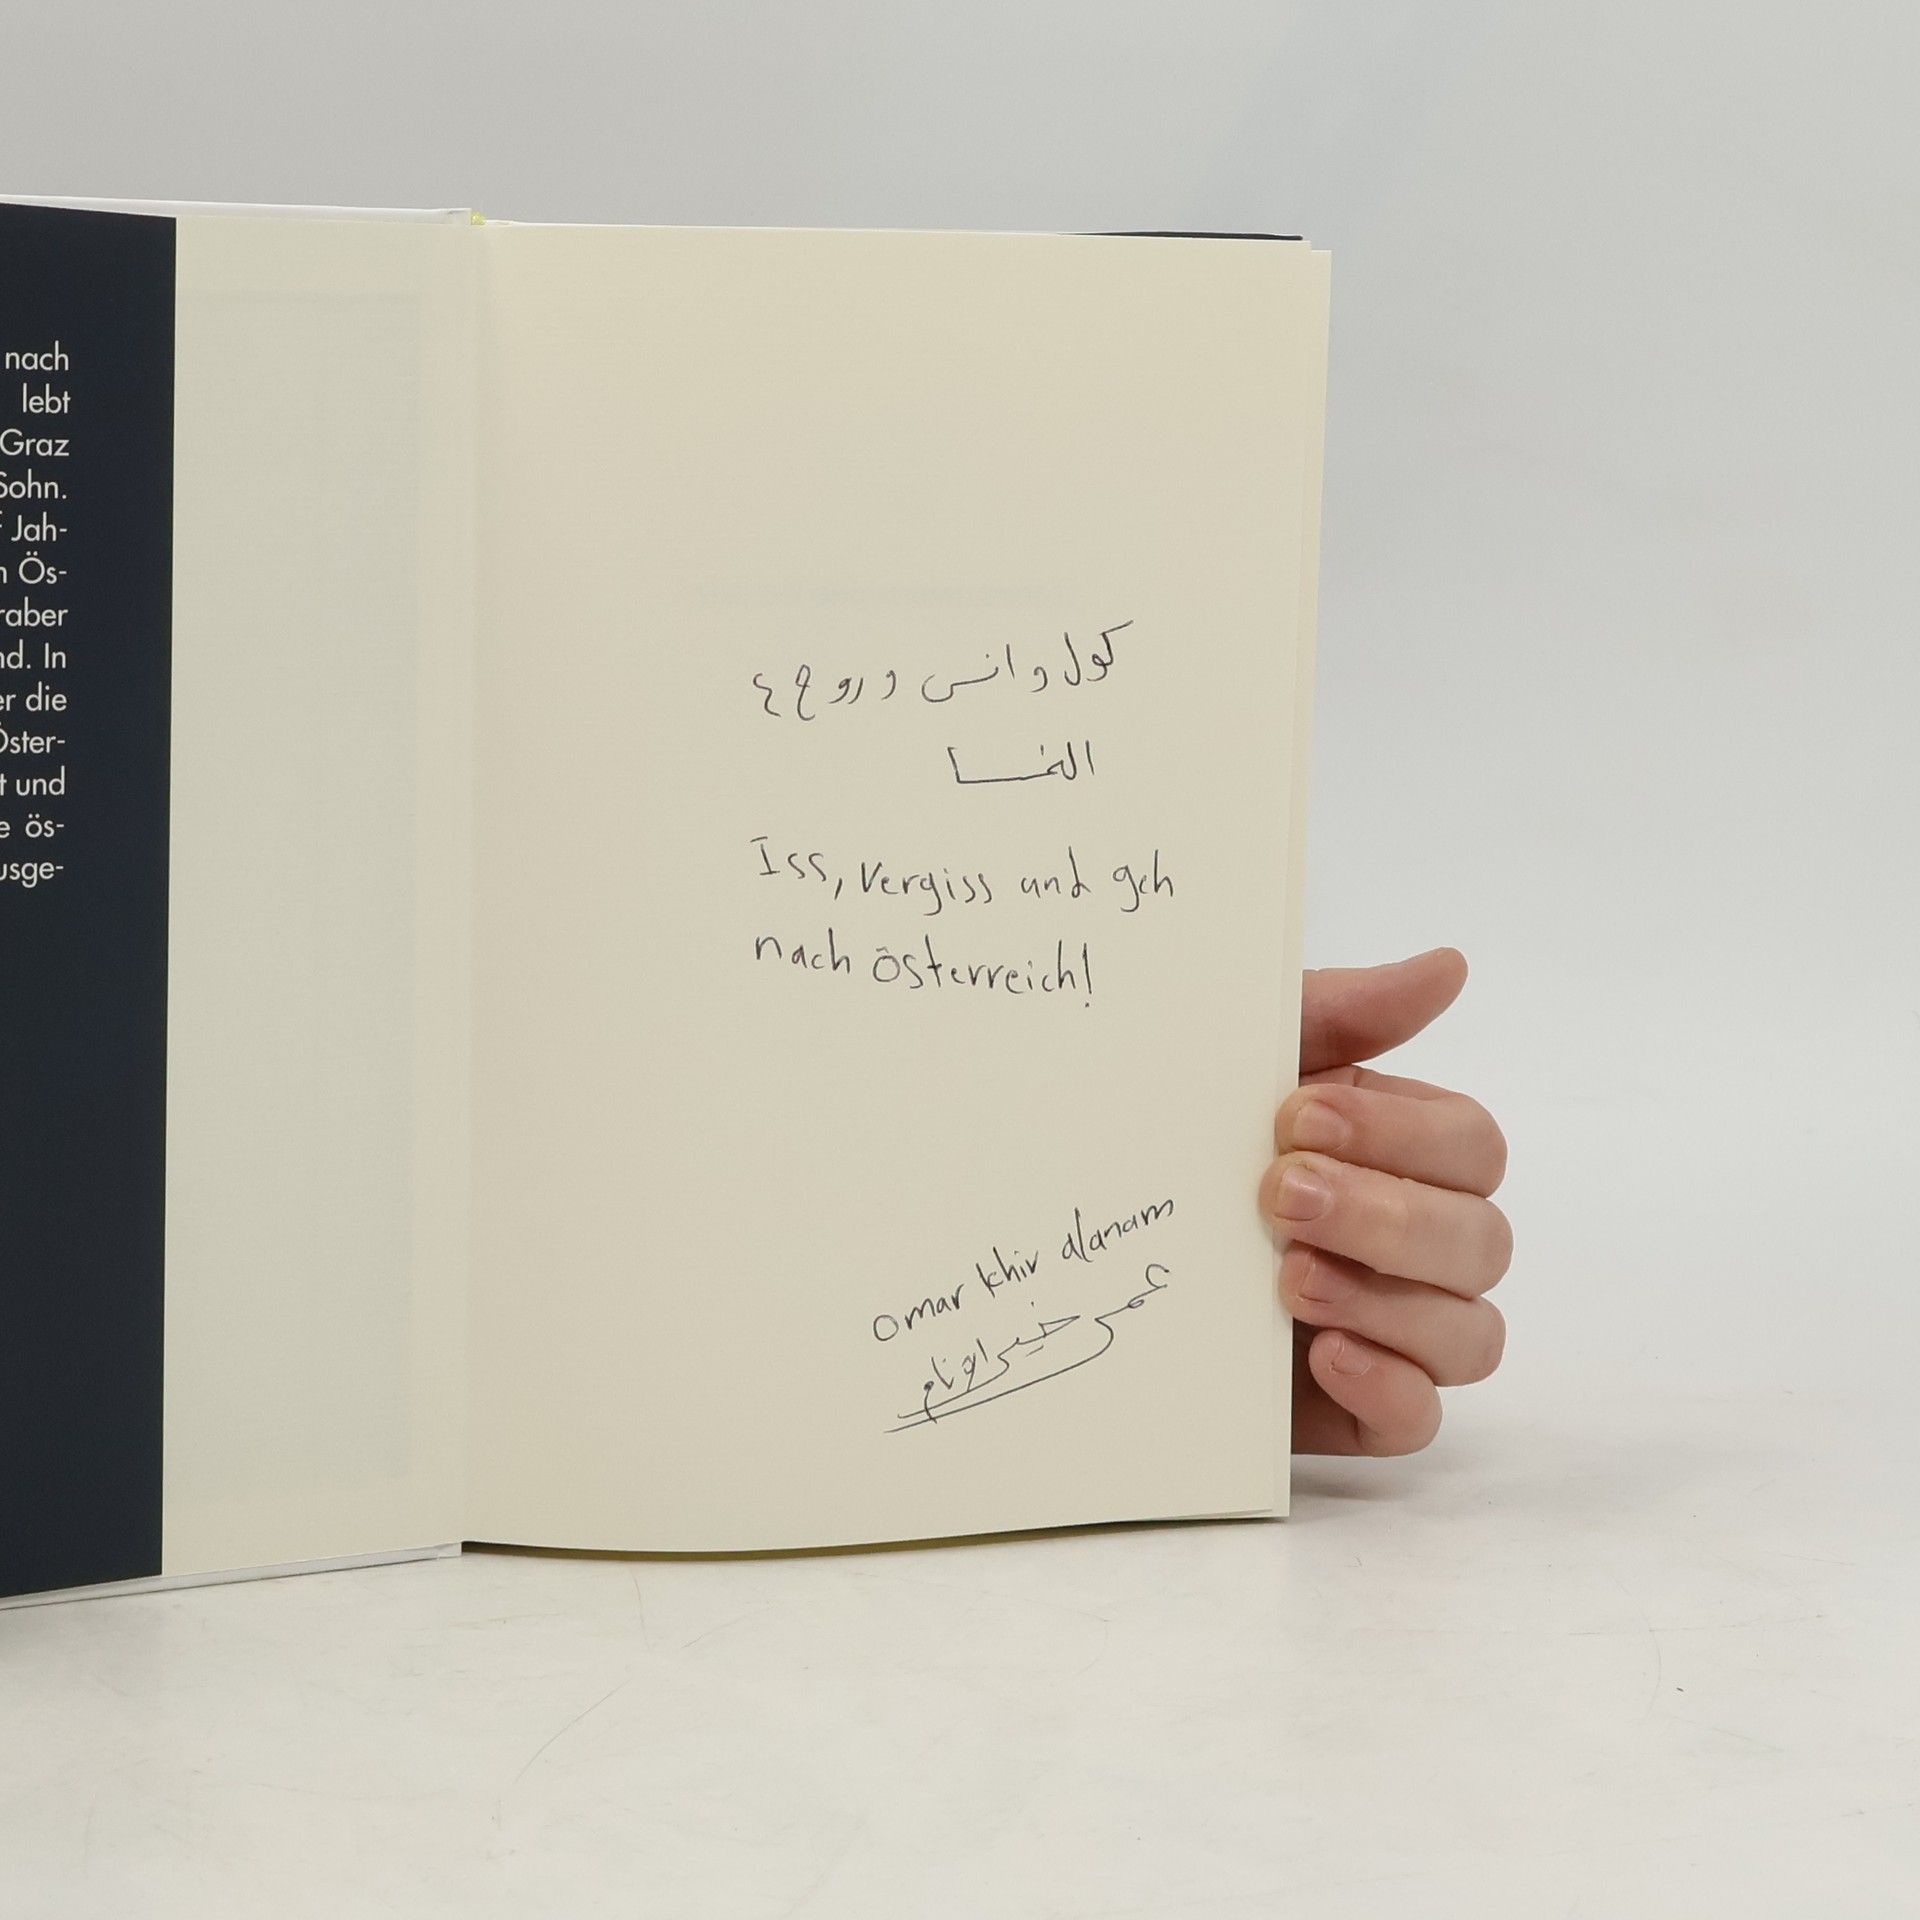 nach
lebt
Graz
Sohn.
f Jah-
n Ös-
raber
nd. In
er die
Öster-
t und
e ös-
usge-
كول وانسى و روح ع
النمسا
Iss, Vergiss und geh
nach österreich!
omar khir alanam
عمر خير الانام